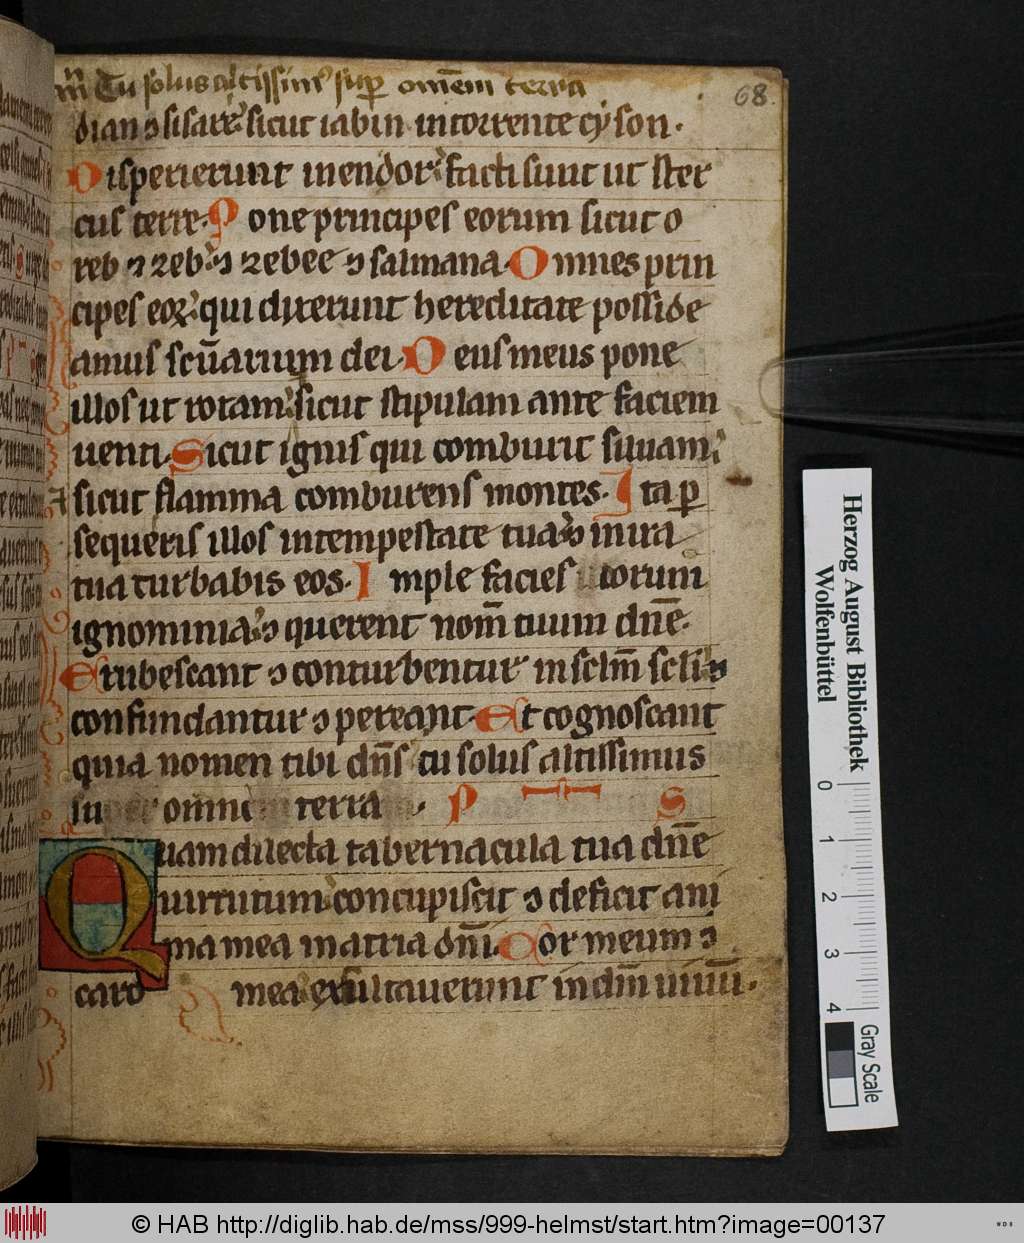 Tu solus altissim' sup omēm terra
68.
dian ⁊ sisare: sicut iabin in torrente cyson.
Disperierunt in endor: facti sunt ut ster
cus terre. Pone principes eorum sicut o
reb ⁊ zeb: ⁊ zebee ⁊ salmana. Omnes prin
cipes eoꝝ: qui dixerunt hereditate posside
amus scūarium dei. Deus meus pone
illos ut rotam: sicut stipulam ante faciem
uenti. Sicut ignis qui comburit siluam:
sicut flamma comburens montes. Ita ꝑ
sequeris illos in tempestate tua: ⁊ in ira
tua turbabis eos. Imple facies illorum
ignominia: ⁊ querent nom̄ tuum dn̄e.
Erubescant ⁊ conturbentur in sclm̄ scli: ⁊
confundantur ⁊ pereant. Et cognoscant
quia nomen tibi dn̄s tu solus altissimus
super omnem terra. P S
Quam dilecta tabernacula tua dn̄e
uirtutum: concupiscit ⁊ deficit ani
ma mea in atria dn̄i. Cor meum ⁊
caro mea: exultauerunt in dm̄ uiuū.
Herzog August Bibliothek
Wolfenbüttel
0 1 2 3 4
Gray Scale
© HAB http://diglib.hab.de/mss/999-helmst/start.htm?image=00137